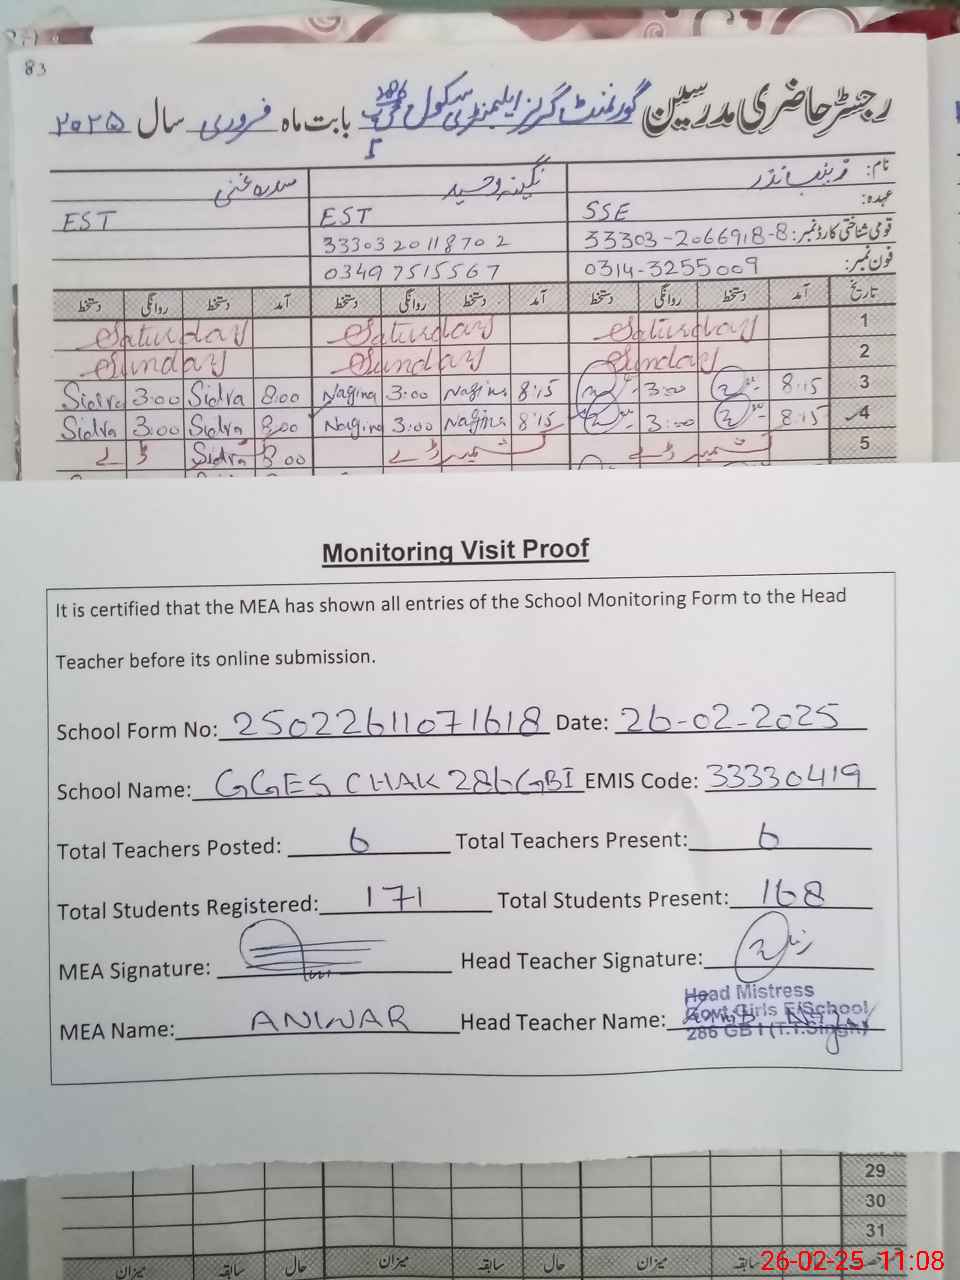 83
رجسٹر حاضری مدرسین گورنمنٹ گرلز ایلیمنٹری سکول 286 گ ب I بابت ماہ فروری سال ۲۰۲۵
نام: نگینہ وحید سدرہ غنی
عہدہ: SSE EST EST
قومی شناختی کارڈ نمبر: 33303-2066918-8 3330320118702
فون نمبر: 0314-3255009 03497515567
تاریخ آمد دستخط روانگی دستخط آمد دستخط روانگی دستخط آمد دستخط روانگی دستخط
1 Saturday Saturday Saturday
2 Sunday Sunday Sunday
3 8:15 3:00 8:15 Nagina 3:00 Nagina 8:00 Sidra 3:00 Sidra
4 8:15 3:00 8:15 Nagina 3:00 Nagina 8:00 Sidra 3:00 Sidra
5 کشمیر ڈے کشمیر ڈے 8:00 Sidra ڈے
Monitoring Visit Proof
It is certified that the MEA has shown all entries of the School Monitoring Form to the Head
Teacher before its online submission.
School Form No: 25022611071618 Date: 26-02-2025
School Name: GGES CHAK 286GBI EMIS Code: 33330419
Total Teachers Posted: 6 Total Teachers Present: 6
Total Students Registered: 171 Total Students Present: 168
MEA Signature: Head Teacher Signature:
MEA Name: ANWAR Head Teacher Name:
Head Mistress
Govt. Girls E/School
286 GB I (T.T.Singh)
29
30
31
حال سابقہ میزان حال سابقہ میزان سابقہ میزان
26-02-25 11:08